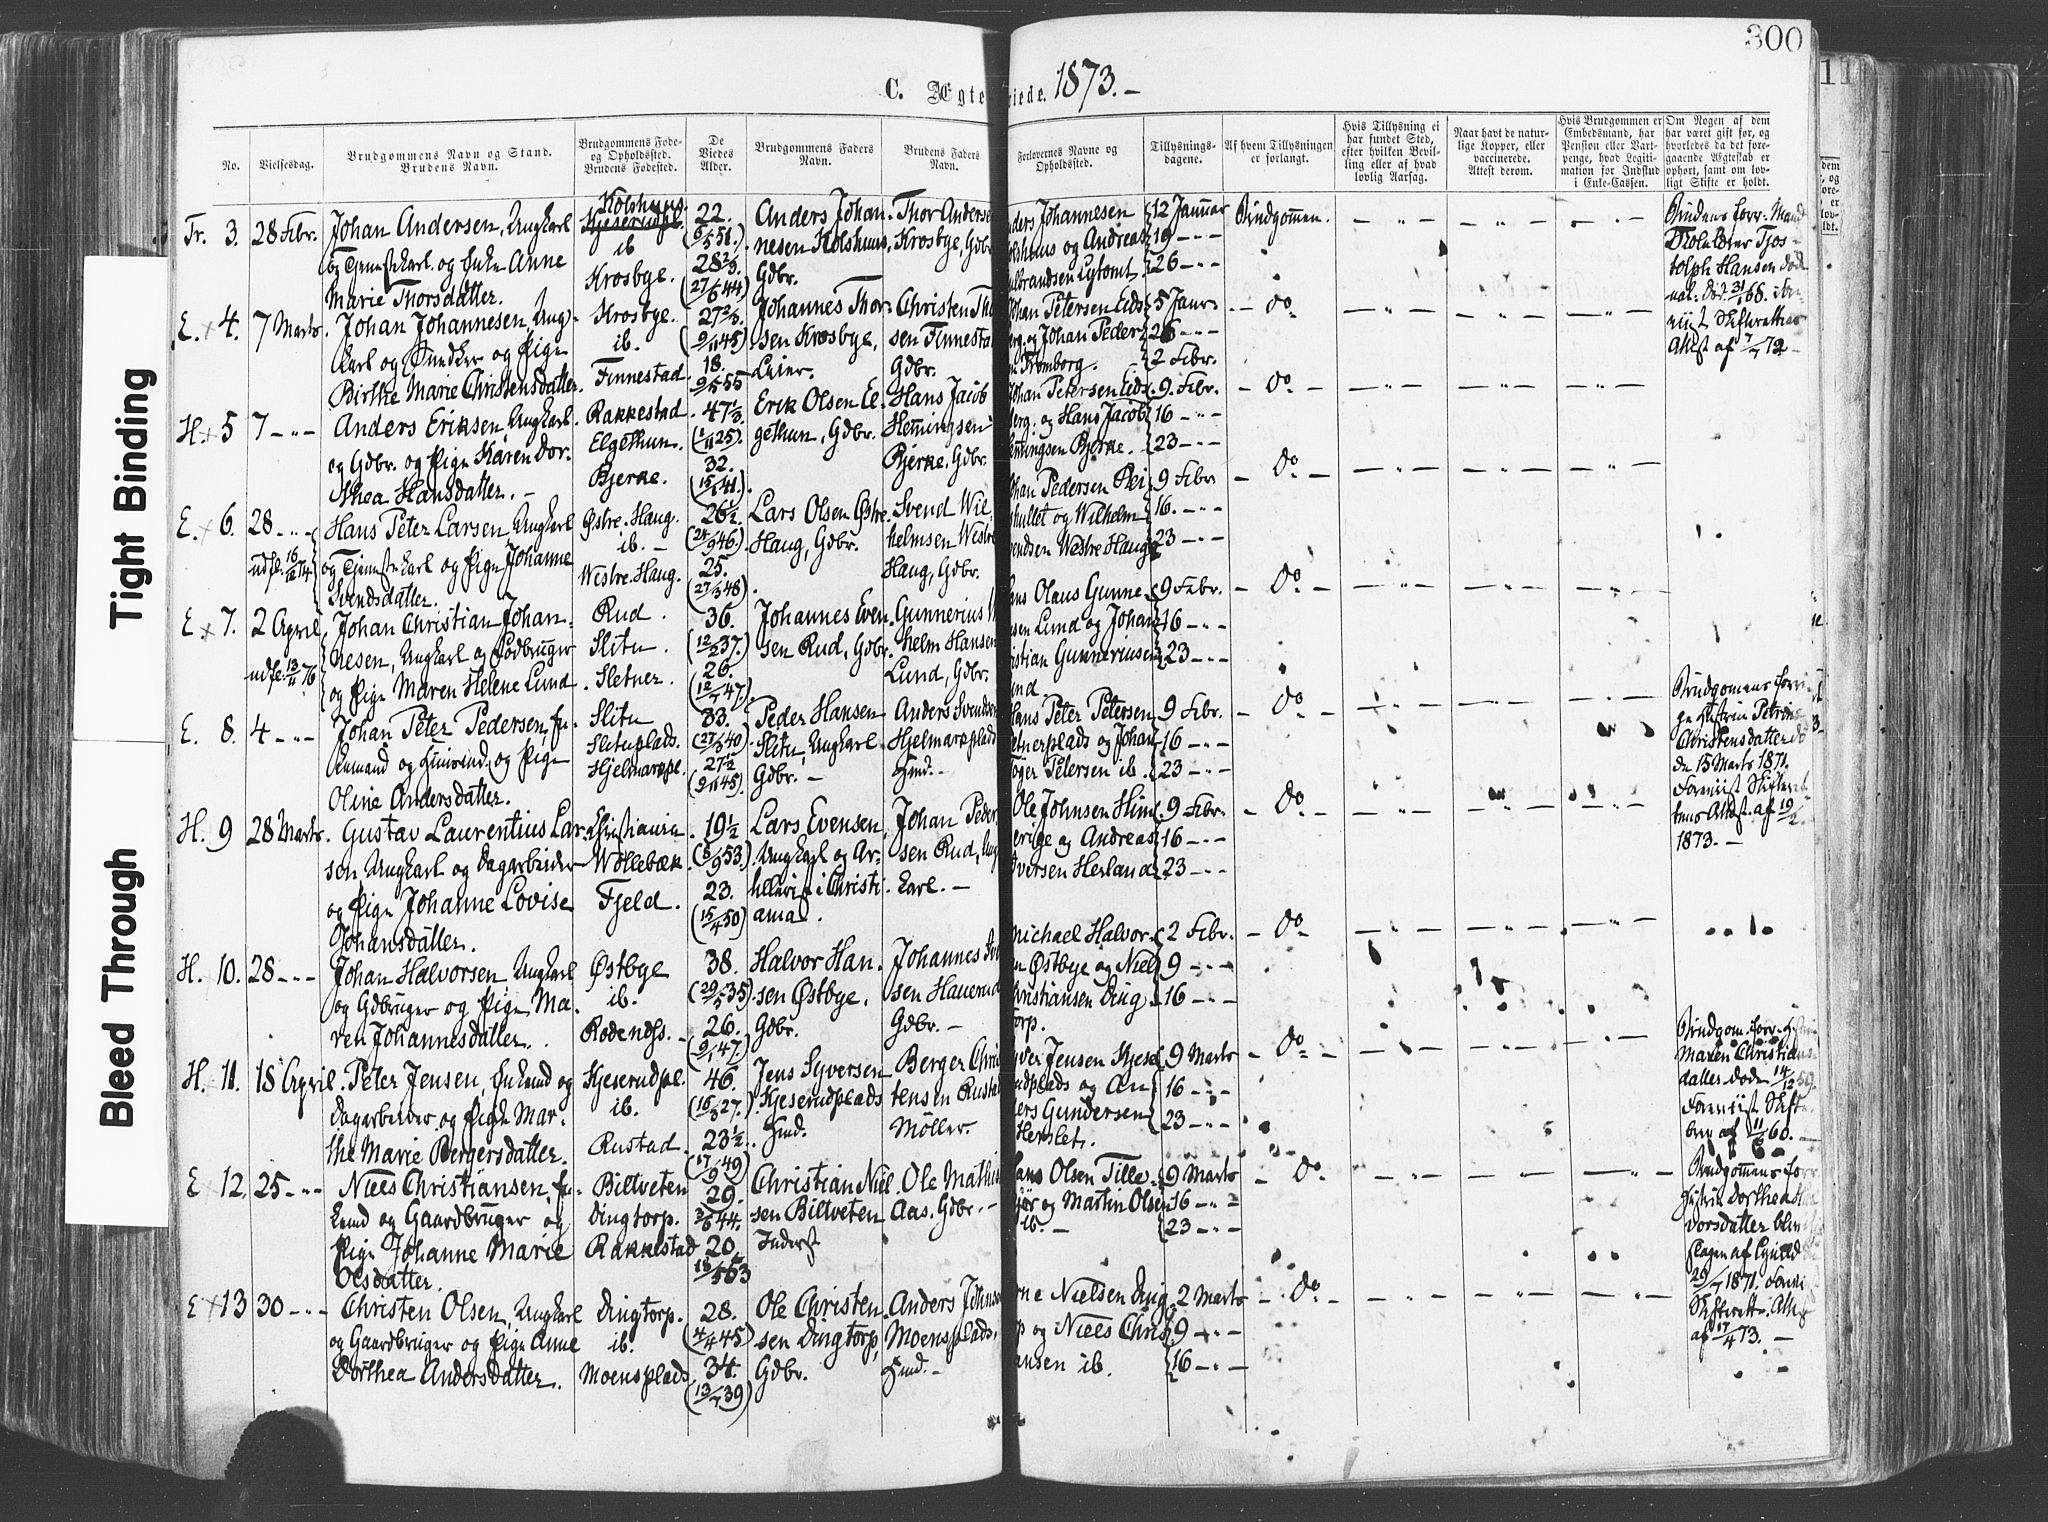 300
11
C. Ægte viede. 1873. –
No.
Vielsesdag.
Brudgommens Navn og Stand.
Brudens Navn.
Brudgommens Føde-
og Opholdssted.
Brudens Fødested.
De
Viedes
Alder.
Brudgommens Faders
Navn.
Brudens Faders
Navn.
Forlovernes Navne og
Opholdssted.
Tillysnings-
dagene.
Af hvem Tillysningen
er forlangt.
Hvis Tillysning ei
har fundet Sted,
efter hvilken Bevil-
ling eller af hvad
lovlig Aarsag.
Naar havt de natur-
lige Kopper, eller
vaccinerede.
Attest derom.
Hvis Brudgommen er
Embedsmand, har
Pension eller Vart-
penge, hvad Legiti-
mation for Indskud
i Enke-Cassen.
Om Nogen af dem
har været gift før, og
hvorledes da det fore-
gaaende Ægteskab er
ophørt, samt om lov-
ligt Skifte er holdt.
Tight Binding
Bleed Through
Fr. 3. 28 Febr.
Johan Andersen, Ungkarl
og Tjenestekarl og Enke Anne
Marie Thorsdatter.
Kolshuus.
ib
Krosbye.
22.
(6/5 51.)
28 2/3.
(27/6 44)
Anders Johan-
nesen Kolshuus,
Gdbr.
Thor Andersen
Krosbye, Gdbr
nders Johannesen
olshuus og Andreas
ulbrandsen Lytomt
12 Januar
19 – „ –
26 – „ –
Brudgommen.
Brudens forr. Mand
Tjos-
tolph Hansen død
Skifterettens
Attest af 1/7 72 –
E. × 4. 7 Marts.
Johan Johannesen, Ung-
karl og Snedker og Pige
Birthe Marie Christensdatter.
Krosbye.
ib.
Finnestad.
27 2/3.
(9/11 45)
18.
9/5 55
Johannes Thor-
sen Krosbye,
Leier.
Christen Tho
sen Finnestad
Gdbr.
Johan Petersen Eids
berg. og Johan Peder
n Tromborg.
5 Janr
26 – „ –
2 Febr.
– Do –
H. × 5 7 – „ –
Anders Eriksen, Ungkarl
og Gdbr. og Pige Karen Dor-
thea Hansdatter. –
Rakkestad
Elgethun.
Bjerke.
47 1/3
(1/11 25).
32.
(15/1 41.)
Erik Olsen El-
gethun, Gdbr.
Hans Jacob
Hemingsen
Bjerke, Gdbr.
Johan Petersen Eids
berg. og Hans Jacob
emingsen Bjerke.
9. Febr.
16 – „ –
23 – „ –
– Do –
E × 6. 28 – „ –
udfl: 16/12 74
Hans Peter Larsen, Ungkarl
og Tjenestekarl og Pige Johanne
Svendsdatter.
Østre. Haug.
ib. –
Westre. Haug.
26 1/2.
(24/9 46.)
25.
(27/3 48)
Lars Olsen Østre
Haug, Gdbr.
Svend Wil
helmsen Westre
Haug, Gdbr.
Johan Pedersen Rei
shullet og Wilhelm
vendsen Westre Haug
9 Febr
16. – „ –
23 – „ –
– Do –
E × 7. 2 April
udfl: 13/11 76
Johan Christian Johan-
nesen, Ungkarl og Jodbruger
og Pige Maren Helene Lund
Rud.
Slitu.
Sletner.
36.
(12/2 37.)
26.
(12/7 47.)
Johannes Even-
sen Rud, Gdbr.
Gunnerius W
helm Hansen
Lund, Gdbr.
ans Olaus Gunne-
sen Lund og Johan
ristian Gunneriusen
und.
9 Febr.
16 – „ –
23 – „ –
– Do –
E. 8. 4 – „ –
Johan Peter Pedersen, En-
kemand og Huusmd. og Pige
Oline Andersdatter.
Slitu
Slituplads.
Hjelmarkpl.
33.
(27/3 40)
27 1/2
(9/11 45).
Peder Hansen
Slitu, Ungkarl
Gdbr. –
Anders Svendsen
Hjelmarkplads
Hmd. –
Hans Peter Petersen
etnerplads og Johan
Tøger Petersen ib.
9 Febr.
16 – „ –
23 – „ –
– Do –
Brudgomens forri-
ge Hustru Petrine
Christensdatter dø
de 15 Marts 1871.
Foreviist Skifteret
tens Attest. af 19/2.
1873. –
H. 9 28 Marts.
Gustav Laurentius Lar-
sen, Ungkarl og Dagarbeider
og Pige Johanne Lovise
Johansdatter.
Christiania
Wollebæk.
Fjeld.
19 1/2
(5/9 53.)
23.
(15/4 50)
Lars Evensen,
Ungkarl og Ar-
tillerist i Christi-
ania.
Johan Peder
sen Rud, Ung
karl. –
Ole Johnsen Him
berige og Andreas
versen Herland
9 Febr.
16 – „ –
23 – „ –
– Do –
H. 10. 28 – „ –
Johan Halvorsen, Ungkarl
og Gdbruger og Pige Ma-
ren Johannesdatter.
Østbye
ib.
Rodenæss.
38.
(29/5 35)
26.
(9/1 47.)
Halvor Han-
sen Østbye.
Gdbr.
Johannes Sv
sen Hauerud
Gdbr. –
michael Halvor-
n Østbye og Niels
hristiansen Ding
torp.
2 Febr.
9 – „ –
16 – „ –
– Do –
H. 11. 18 April.
Peter Jensen, Enkemd og
Dagarbeider og Pige Mar-
the Marie Bergersdatter.
Kjeserudpl.
ib.
Rustad.
46.
(16/3 27.)
23 1/2
(17/9 49)
Jens Syversen
Kjeserudplads
Hmd.
Berger Chris
tensen Rustad
Møller.
yver Jensen Kjese
rudplads og An
ders Gundersen
Herslet.
9 Marts
16 – „ –
23 – „ –
– Do –
Brudgom. forr. Hustru
Maren Christians
datter døde 14/12 59.
Foreviist Skifte
brev af 11/6 60. –
E × 12. 25 – „ –
Niels Christiansen, En-
kemd og Gaardbruger og
Pige Johanne Marie
Olsdatter.
Biltveten
Dingtorp.
Rakkestad
29.
3/6 44.
20.
18/5 53
Christian Niel-
sen Biltveten
Inderst
Ole Mathis
Aas. Gdbr. –
ans Olsen Tille-
gjør og Martin Olsen
ib. –
9 Marts
16 – „ –
23 – „ –
– Do –
Brudgommens forr
Hustru Dorthea
dorsdatter blev
slagen af Lynild
29/7 1871. Forevi
Skifterett. Attest
af 17/4 73. –
E × 13 30 – „ –
Christen Olsen, Ungkarl
og Gaardbruger og Pige Anne
Dorthea Andersdatter.
Dingtorp.
ib.
Moensplads.
28.
(4/4 45)
34.
(13/7 39)
Ole Christen-
sen Dingtorp,
Gdbr.
Anders Johnsen
Moensplads,
Hmd. –
rne Nielsen Ding
p og Niels Chris
ansen ib.
2 Marts
9 – „ –
16 – „ –
– Do –